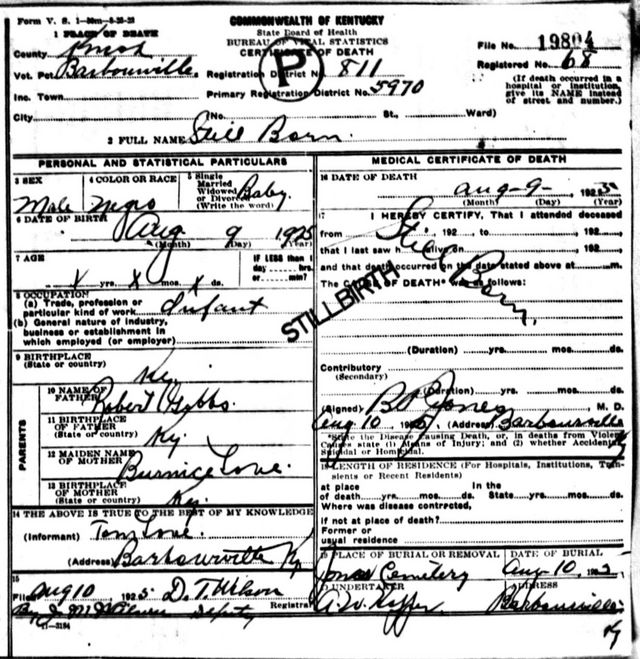 Form V. S. 1—50m—8-20-23
1 PLACE OF DEATH
COMMONWEALTH OF KENTUCKY
State Board of Health
BUREAU OF VITAL STATISTICS
CERTIFICATE OF DEATH
P
County Knox
Vot. Pct. Barbourville
Inc. Town
City
File No. 19804
Registered No. 68
(If death occurred in a hospital or institution, give its NAME instead of street and number.)
Registration District No. 811
Primary Registration District No. 5970
(No. St., Ward)
2 FULL NAME Still Born.
PERSONAL AND STATISTICAL PARTICULARS
3 SEX
Male
4 COLOR OR RACE
Negro
5 Single Married Widowed or Divorced (Write the word)
Baby
6 DATE OF BIRTH
Aug 9 1925
(Month) (Day) (Year)
7 AGE
X yrs. X mos. X ds.
IF LESS than 1 day ----- hrs. or ----- min?
8 OCCUPATION
(a) Trade, profession or particular kind of work infant
(b) General nature of industry, business or establishment in which employed (or employer)
9 BIRTHPLACE
(State or country) Ky.
PARENTS
10 NAME OF FATHER Robert Gibbs.
11 BIRTHPLACE OF FATHER
(State or country) Ky.
12 MAIDEN NAME OF MOTHER Burnice Love.
13 BIRTHPLACE OF MOTHER
(State or country) Ky.
14 THE ABOVE IS TRUE TO THE BEST OF MY KNOWLEDGE
(Informant) Tom Love.
(Address) Barbourville Ky
15
Filed Aug 10, 1925 D. T. Wilson
Registrar
Deputy
11—3184
MEDICAL CERTIFICATE OF DEATH
16 DATE OF DEATH
Aug-9-, 192
(Month) (Day) (Year)
17 I HEREBY CERTIFY, That I attended deceased
from , 192 , to , 192
that I last saw h alive on , 192
and that death occurred on the date stated above at m.
The CAUSE OF DEATH* was as follows:
Still Born.
STILLBIRTH
(Duration) yrs. mos. ds.
Contributory
(Secondary)
(Duration) yrs. mos. ds.
(Signed) Jones, M. D.
Aug 10 192 (Address) Barbourville
Ky
*State the Disease Causing Death, or, in deaths from Violent Causes state (1) Means of Injury; and (2) whether Accidental, Suicidal or Homicidal.
18 LENGTH OF RESIDENCE (For Hospitals, Institutions, Transients or Recent Residents)
at place of death yrs. mos. ds. In the State yrs. mos. ds.
Where was disease contracted,
If not at place of death?
Former or usual residence
19 PLACE OF BURIAL OR REMOVAL
Cemetery
DATE OF BURIAL
Aug-10, 1925
20 UNDERTAKER
ADDRESS
Barbourville
Ky